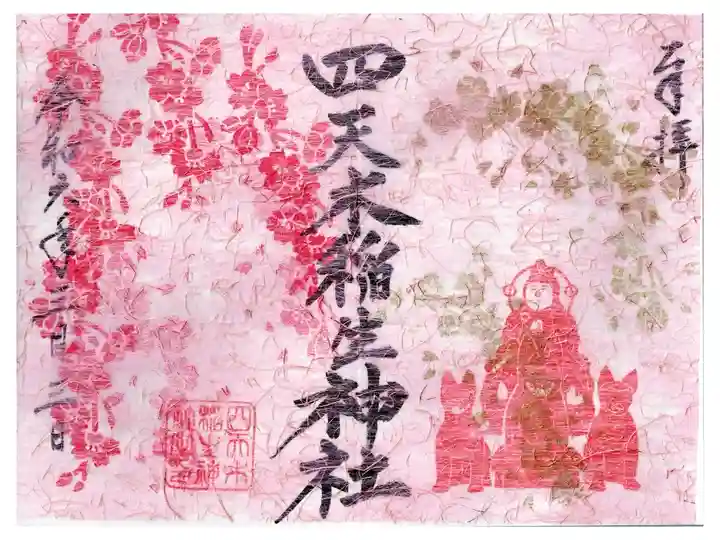 奉拝
四天木稲生神社
令和六年三月三日
四天木
稲生神